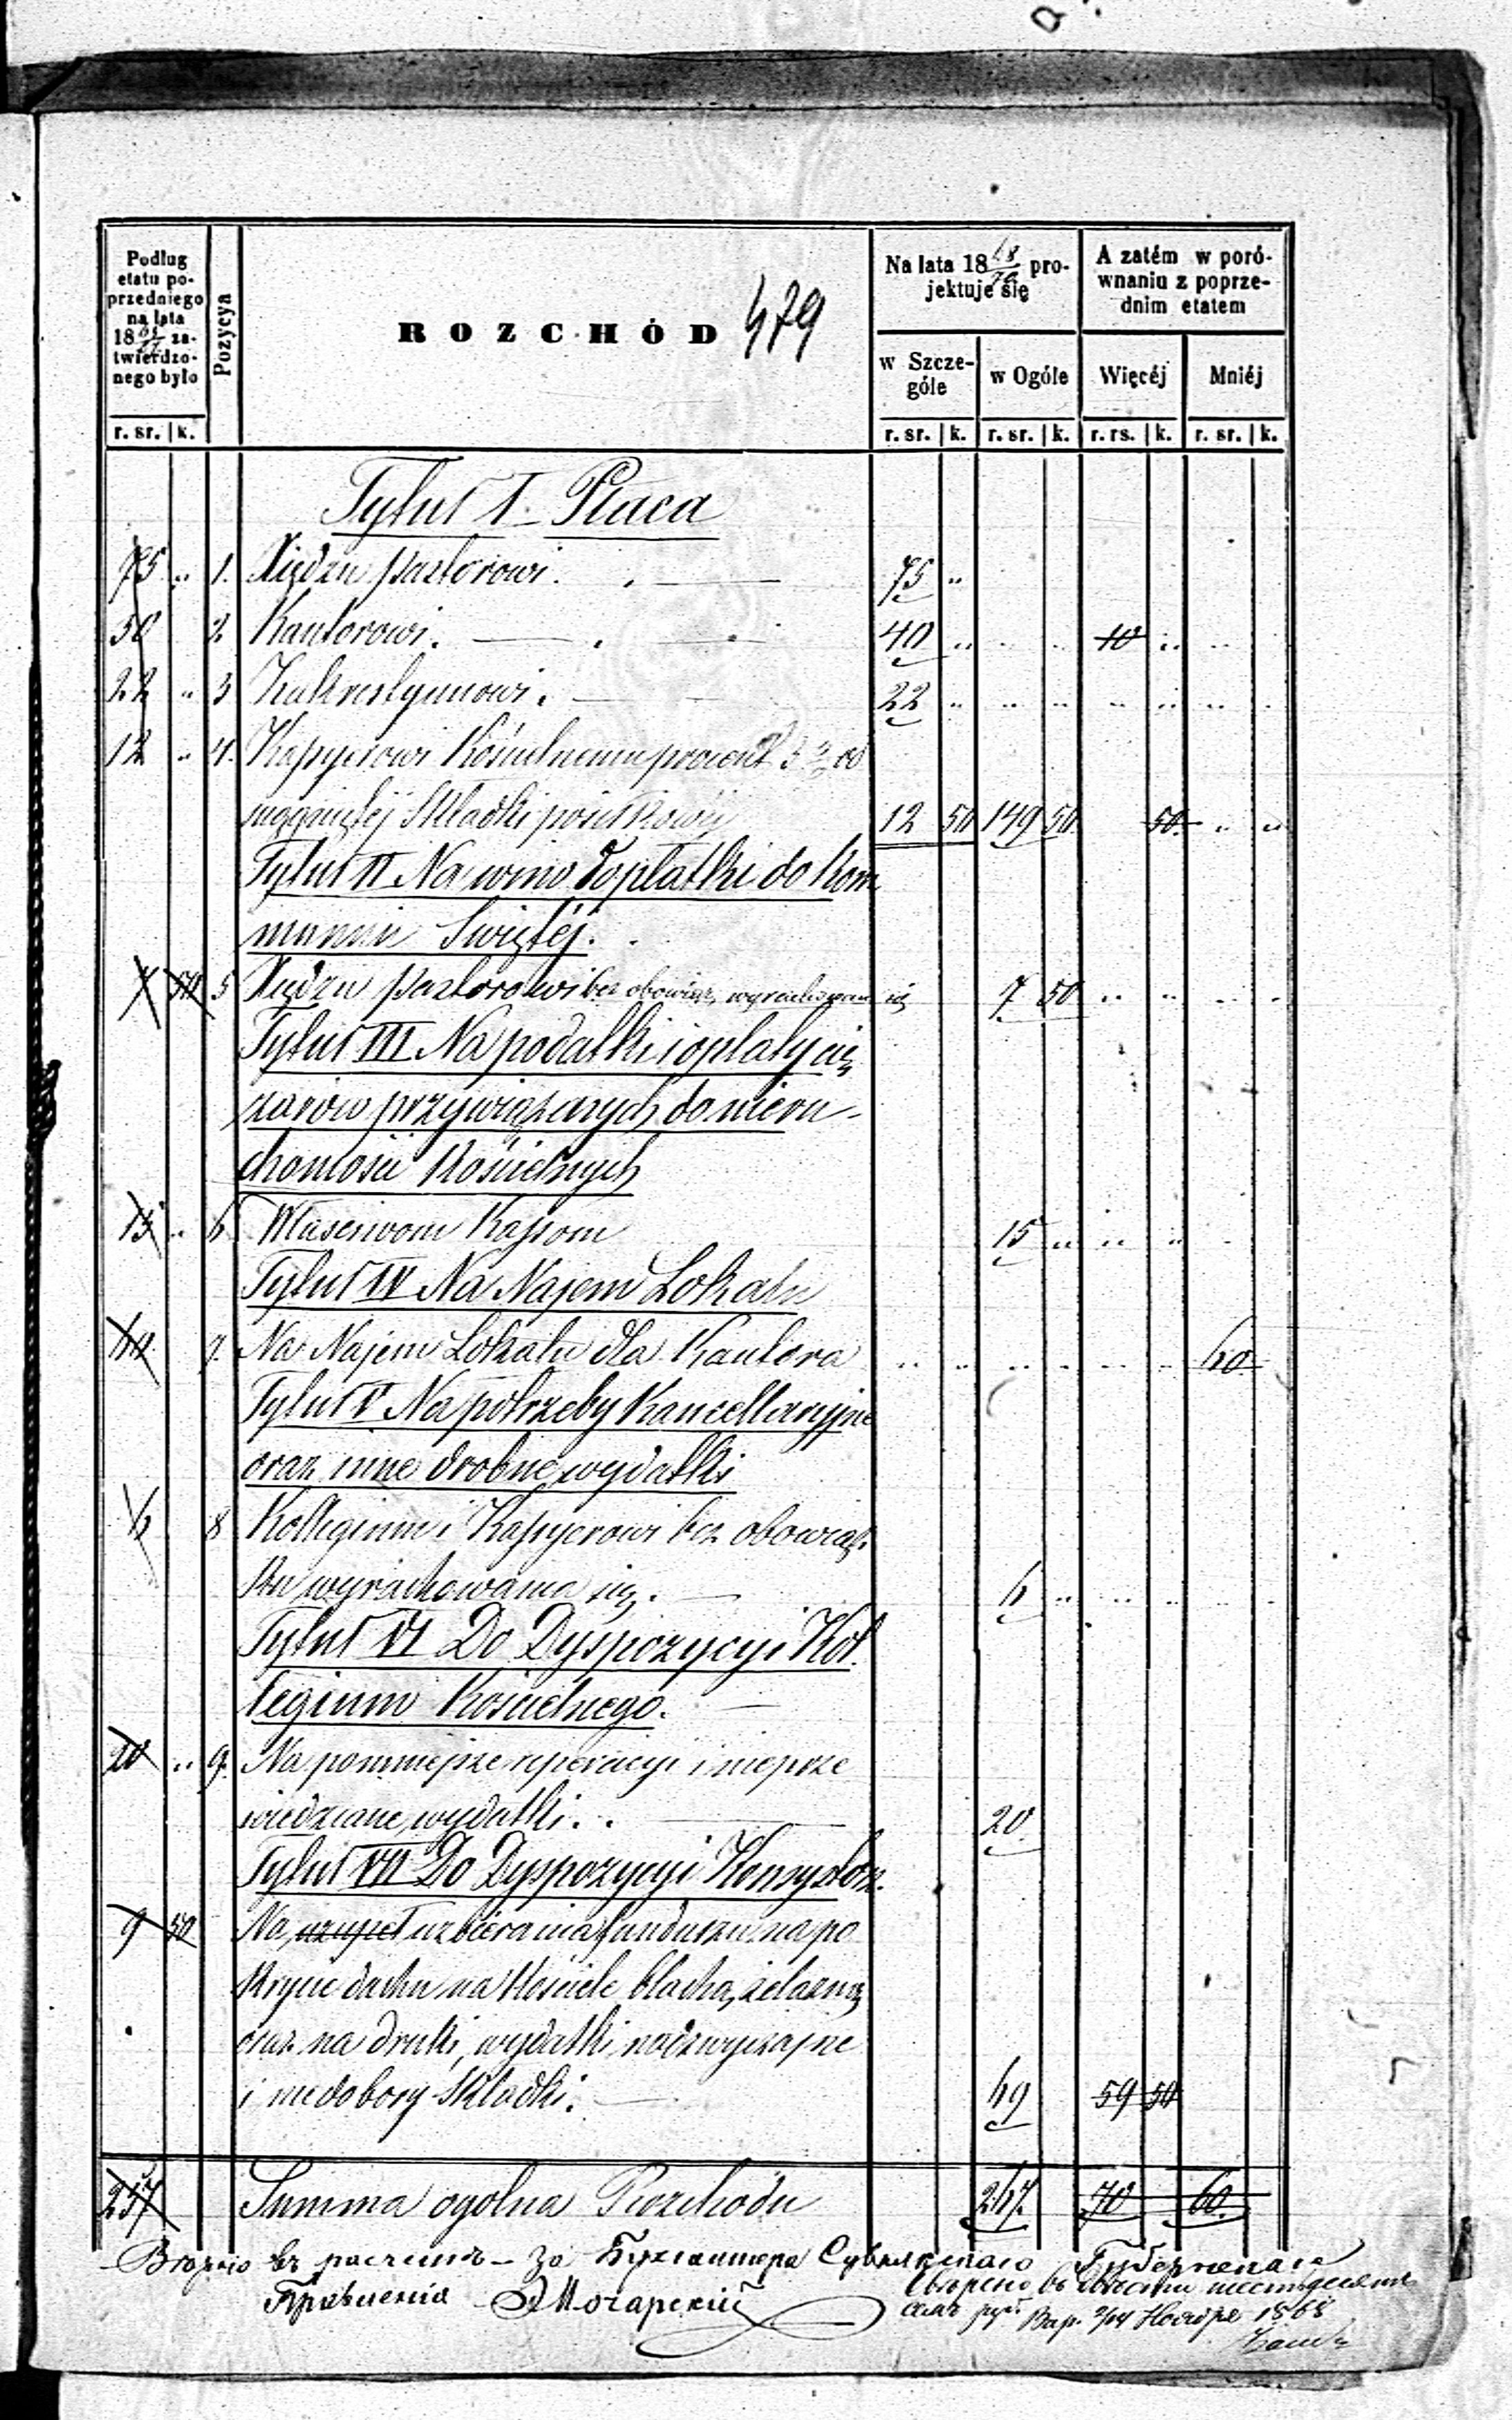 Podług etatu poprzedniego na lata 18 65/67 zatwierdzonego było
Pozycya
ROZCHÓD 479
Na lata 18 68/70 projektuje się
A zatém w porównaniu z poprzednim etatem
w Szczególe
w Ogóle
Więcéj
Mniéj
r. sr. k. r. sr. k. r. sr. k. r. rs. k. r. sr. k.
Tytuł I - Płaca
75 „ 1. Xiędzu pastorowi. 75 „
50 2 Kantorowi. 40 „ „ „ 10 „ „
22 „ 3 Kalkrestyanowi. 22 „ „ „ „ „ „
12 „ 4. Kassyerowi Kościelnemu procent 5 % od
ściągniętéj Składki posiłkowéj 12 50 149 50 50 „ „
Tytuł II Na wino i opłatki do Kom
munii Świętéj.
7 50 5 Xiędzu pastorowi bez obowiąz. wyrachowania się 7 50 „ „ „ „
Tytuł III Na podatki i opłaty cię
żarów przywiązanych do nieru-
chomości Kościelnych
15 „ 6 Właściwom Kassom 15 „ „ „
Tytuł IV Na Najem Lokalu
60 7. Na Najem Lokalu dla Kantora „ „ „ „ „ „ 60
Tytuł V Na potrzeby Kancellaryjne
oraz inne drobne wydatki
6 8 Kollegium i Kassyerowi bez obowiąz.
ku wyrachowania się. 6 „ „ „ „
Tytuł VI Do Dyspozycyi Kol
legium Kościelnego.
20 „ 9. Na pomniejsze reperacye i nieprze
widziane wydatki. 20
Tytuł VII Do Dyspozycyi Konsystorz.
9 50 Na uzupeł uzbierania funduszu na po
krycie dachu na Kościele blachą żelazną
oraz na druki, wydatki nadzwyczajne
i niedobory Składki. 69 59 50
257 Summa ogólna Rozchodu 267. 70 60.
За Бухгалтера Сувалкскаго Губернскаго
Правления Мочарский
двести шестьдесят
семь руб. Вар. 2/14 Ноября 1868